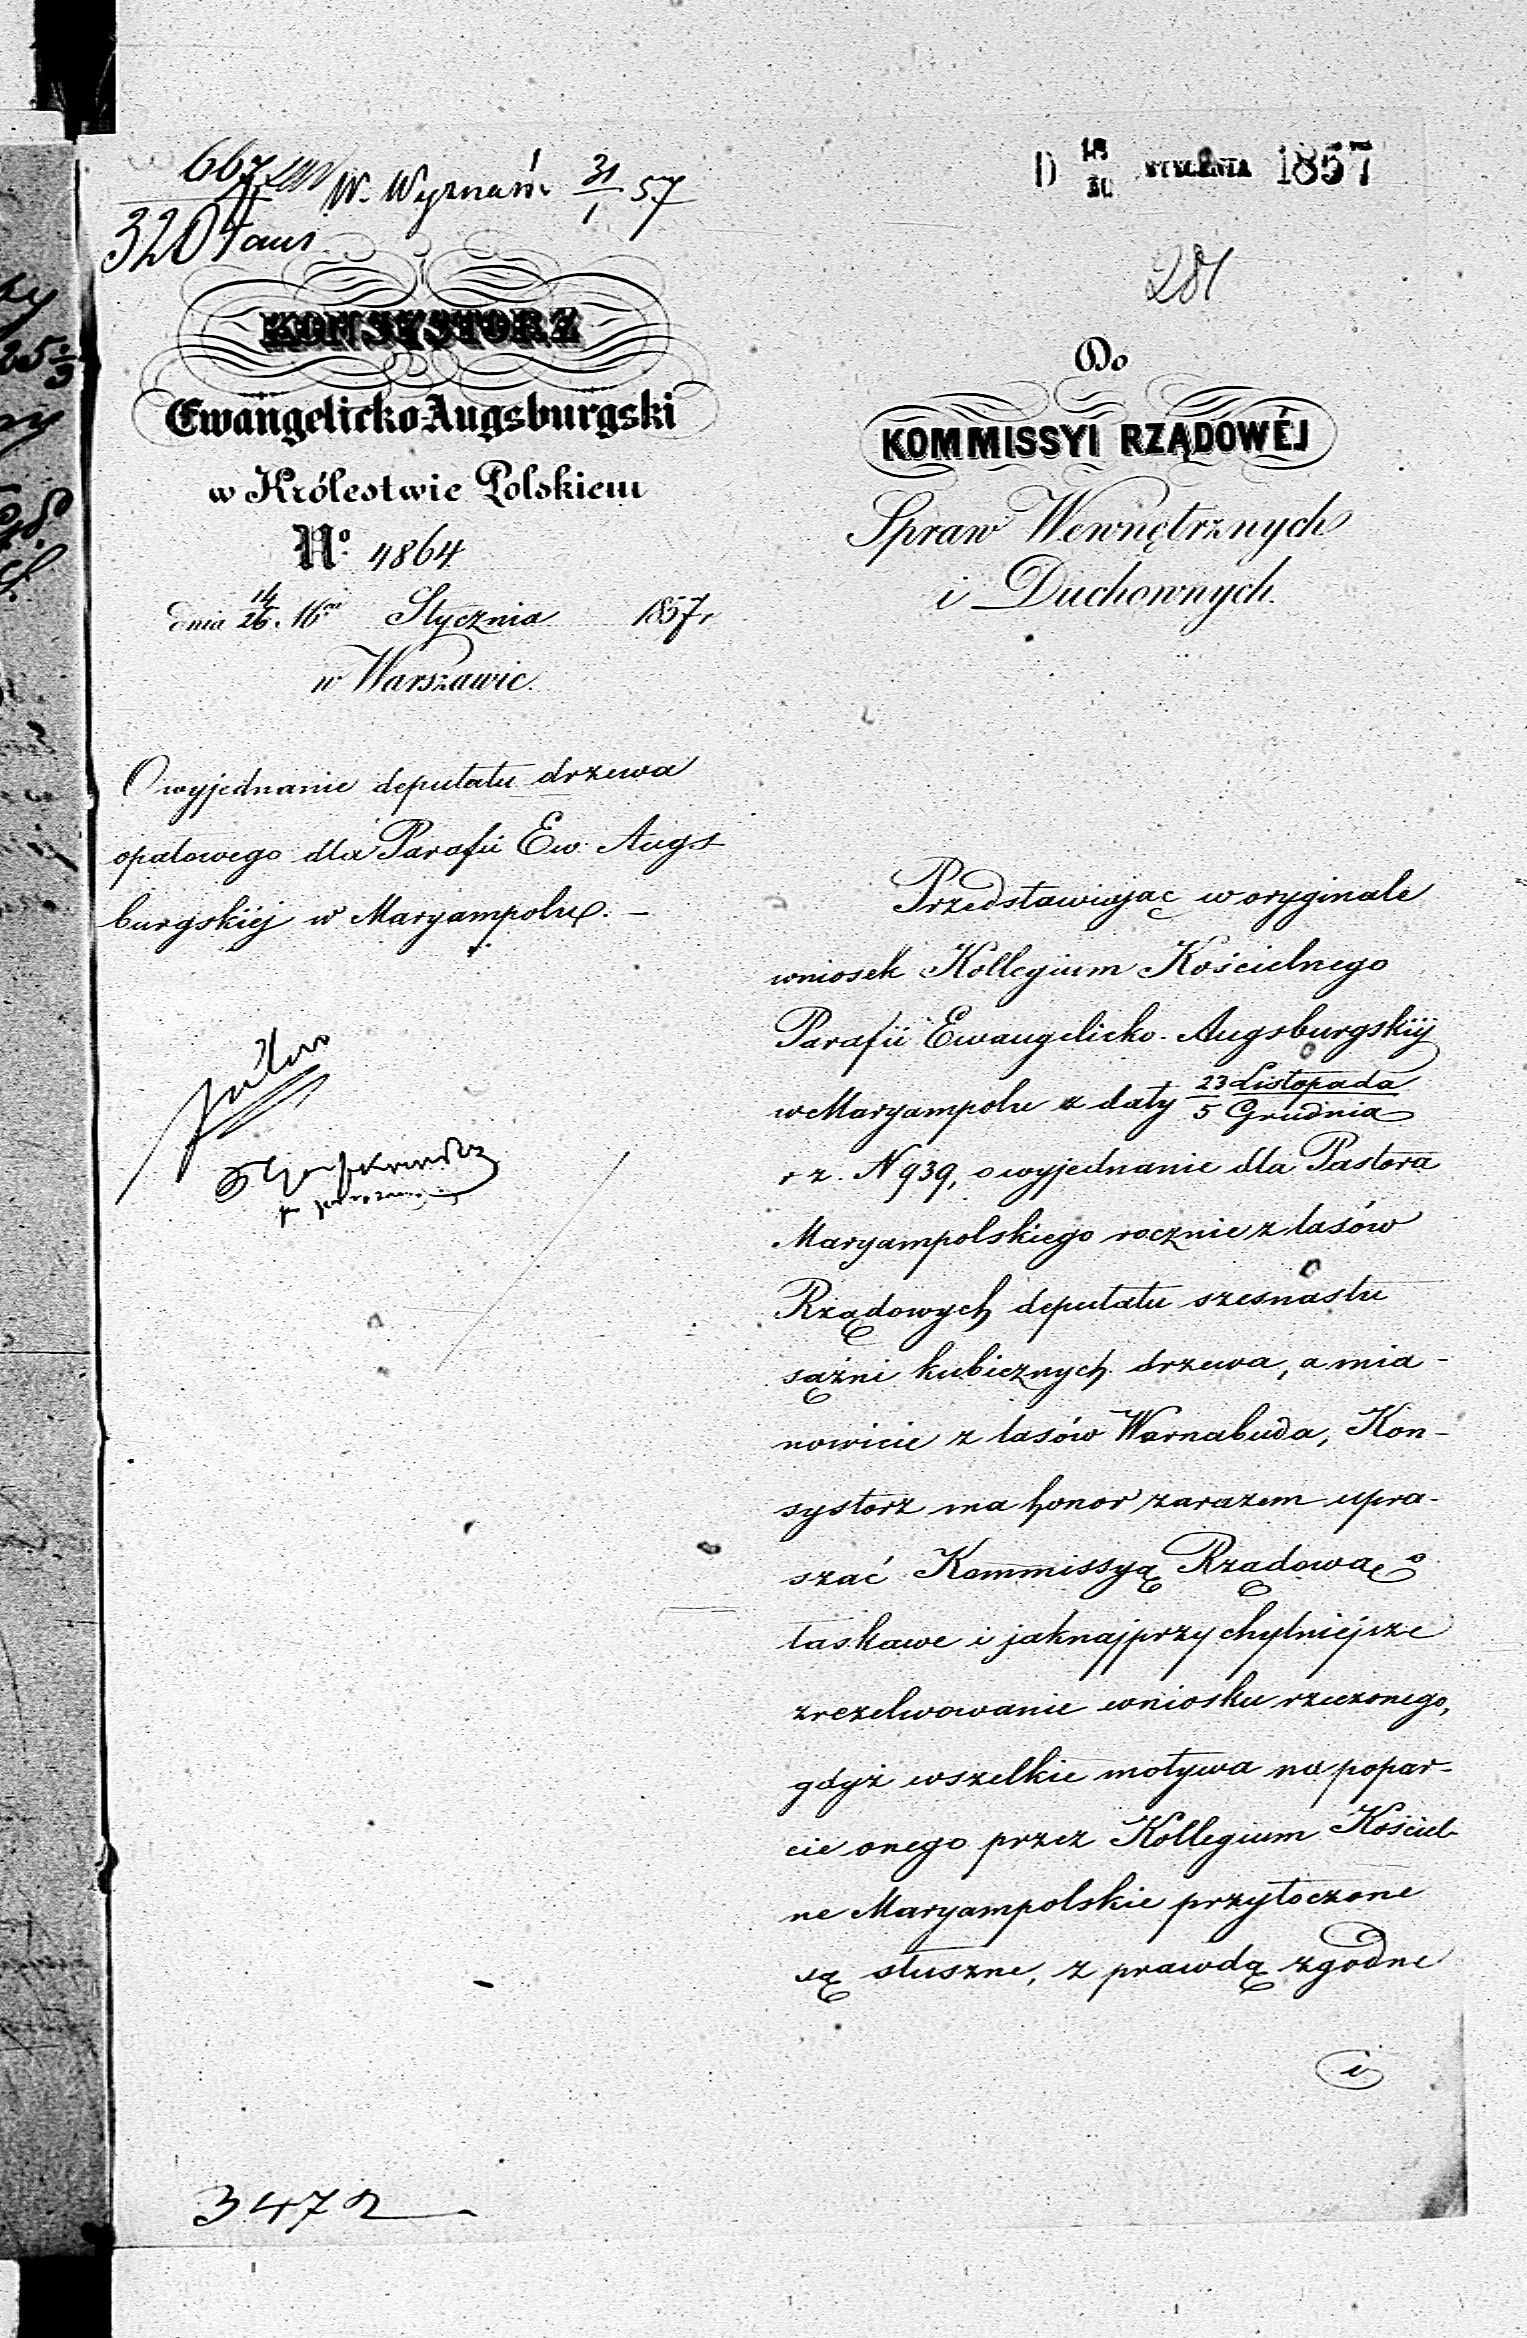 667
3204
W. Wyznań 31/1 57
D 18/30 STYCZNIA 1857
281
KONSYSTORZ
Ewangelicko-Augsburgski
w Królestwie Polskiem
No. 4864
dnia 14/26. 16go Stycznia 1857r
w Warszawie.
Do
KOMMISSYI RZĄDOWÉJ
Spraw Wewnętrznych
i Duchownych.
O wyjednanie deputatu drzewa
opałowego dla Parafii Ew. Augs
burgskiéj w Maryampolu. –
Przedstawiając w oryginale
wniosek Kollegium Kościelnego
Parafii Ewangelicko-Augsburgskiéj
w Maryampolu z daty 23 Listopada / 5 Grudnia
r z. N 939, o wyjednanie dla Pastora
Maryampolskiego rocznie z lasów
Rządowych deputatu szesnastu
sążni kubicznych drzewa, a mia-
nowicie z lasów Warnabuda, Kon-
systorz ma honor zarazem upra-
szać Kommissyą Rządową o
łaskawe i jaknajprzychylniejsze
zrezelwowanie wniosku rzeczonego,
gdyż wszelkie motywa na popar-
cie onego przez Kollegium Kościel-
ne Maryampolskie przytoczone
są słuszne, z prawdą zgodne
i
3472